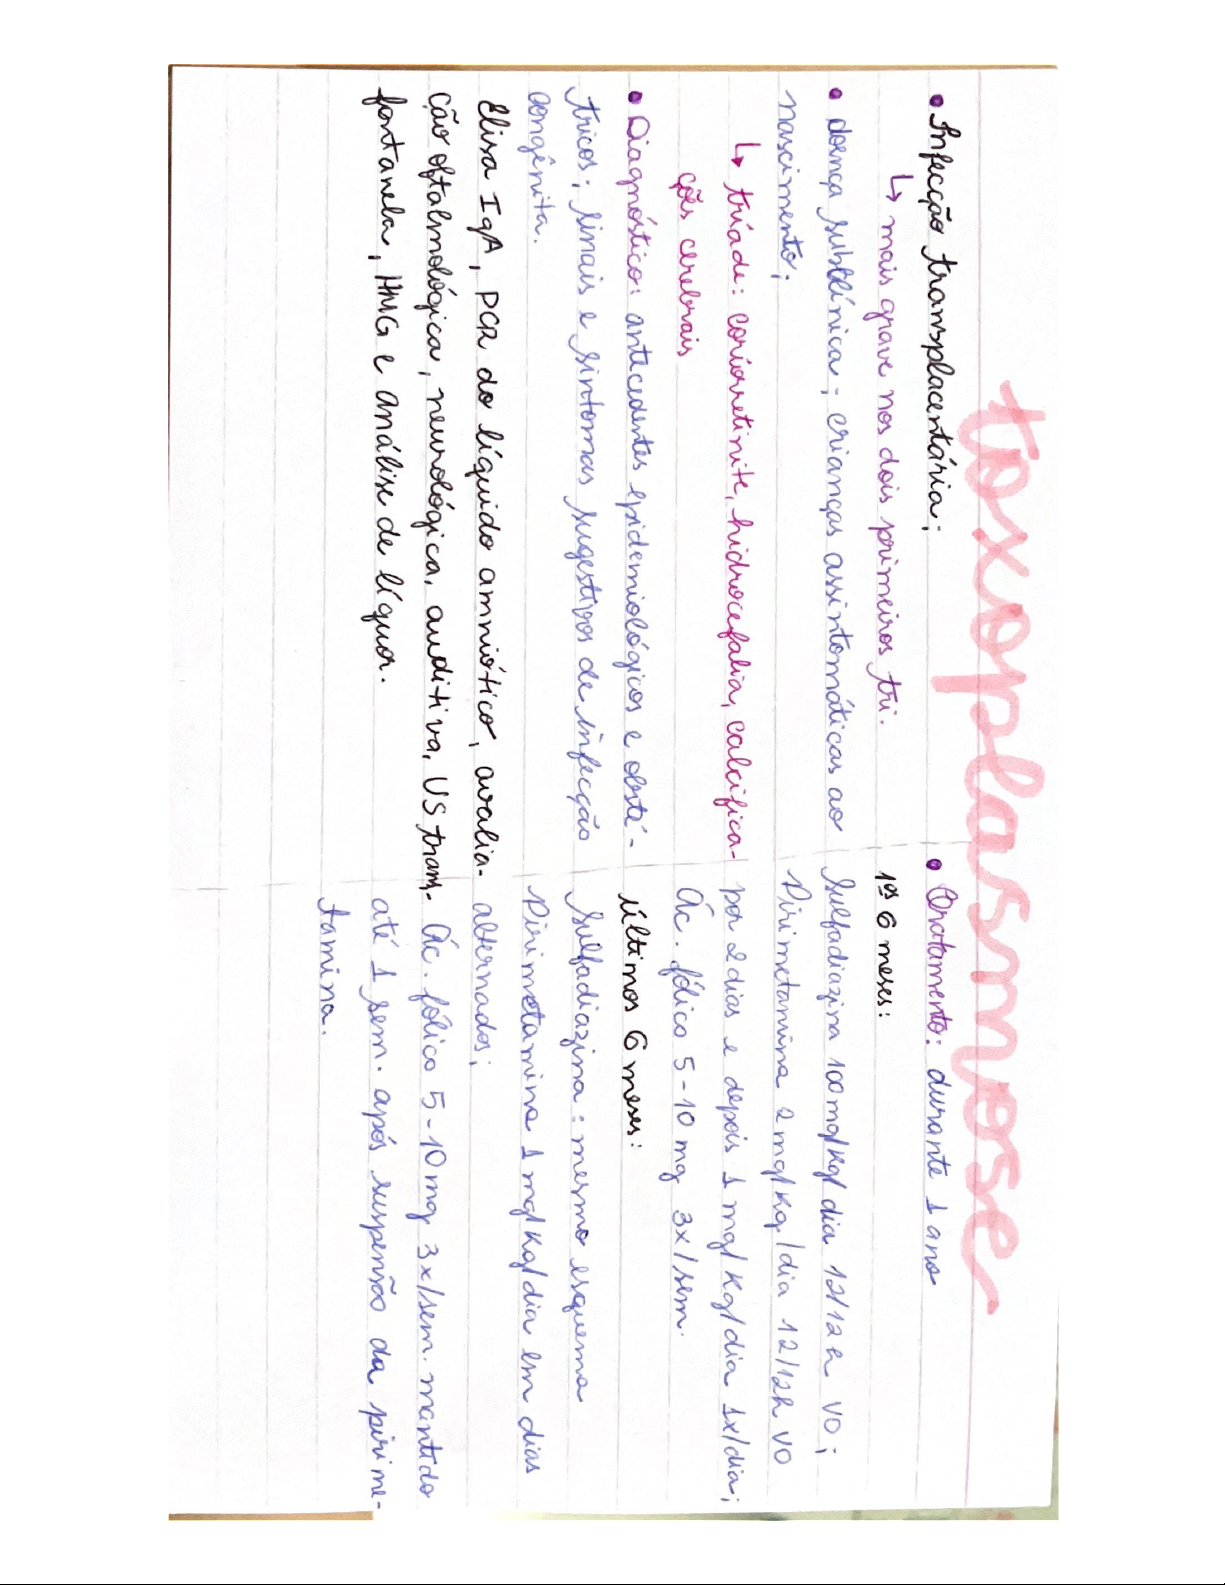 toxoplasmose
• Infecção transplacentária;
↳ mais grave nos dois primeiros tri.
• doença subclínica; crianças assintomáticas ao
nascimento;
↳ tríade: coriorretinite, hidrocefalia, calcifica-
ções cerebrais
• Diagnóstico: antecedentes epidemiológicos e obsté-
tricos; sinais e sintomas sugestivos de infecção
congênita.
Elisa IgA, PCR do líquido amniótico, avalia-
ção oftalmológica, neurológica, auditiva, US trans-
fontanela, HMG e análise de líquor.
• Tratamento: durante 1 ano
1ºs 6 meses:
Sulfadiazina 100mg/Kg/dia 12/12h VO;
Pirimetamina 2mg/Kg/dia 12/12h VO
por 2 dias e depois 1 mg/Kg/dia 1x/dia;
Ác. fólico 5-10 mg 3x/sem.
últimos 6 meses:
Sulfadiazina: mesmo esquema
Pirimetamina 1mg/Kg/dia em dias
alternados;
Ác. fólico 5-10mg 3x/sem. mantido
até 1 sem. após suspensão da pirime-
tamina.